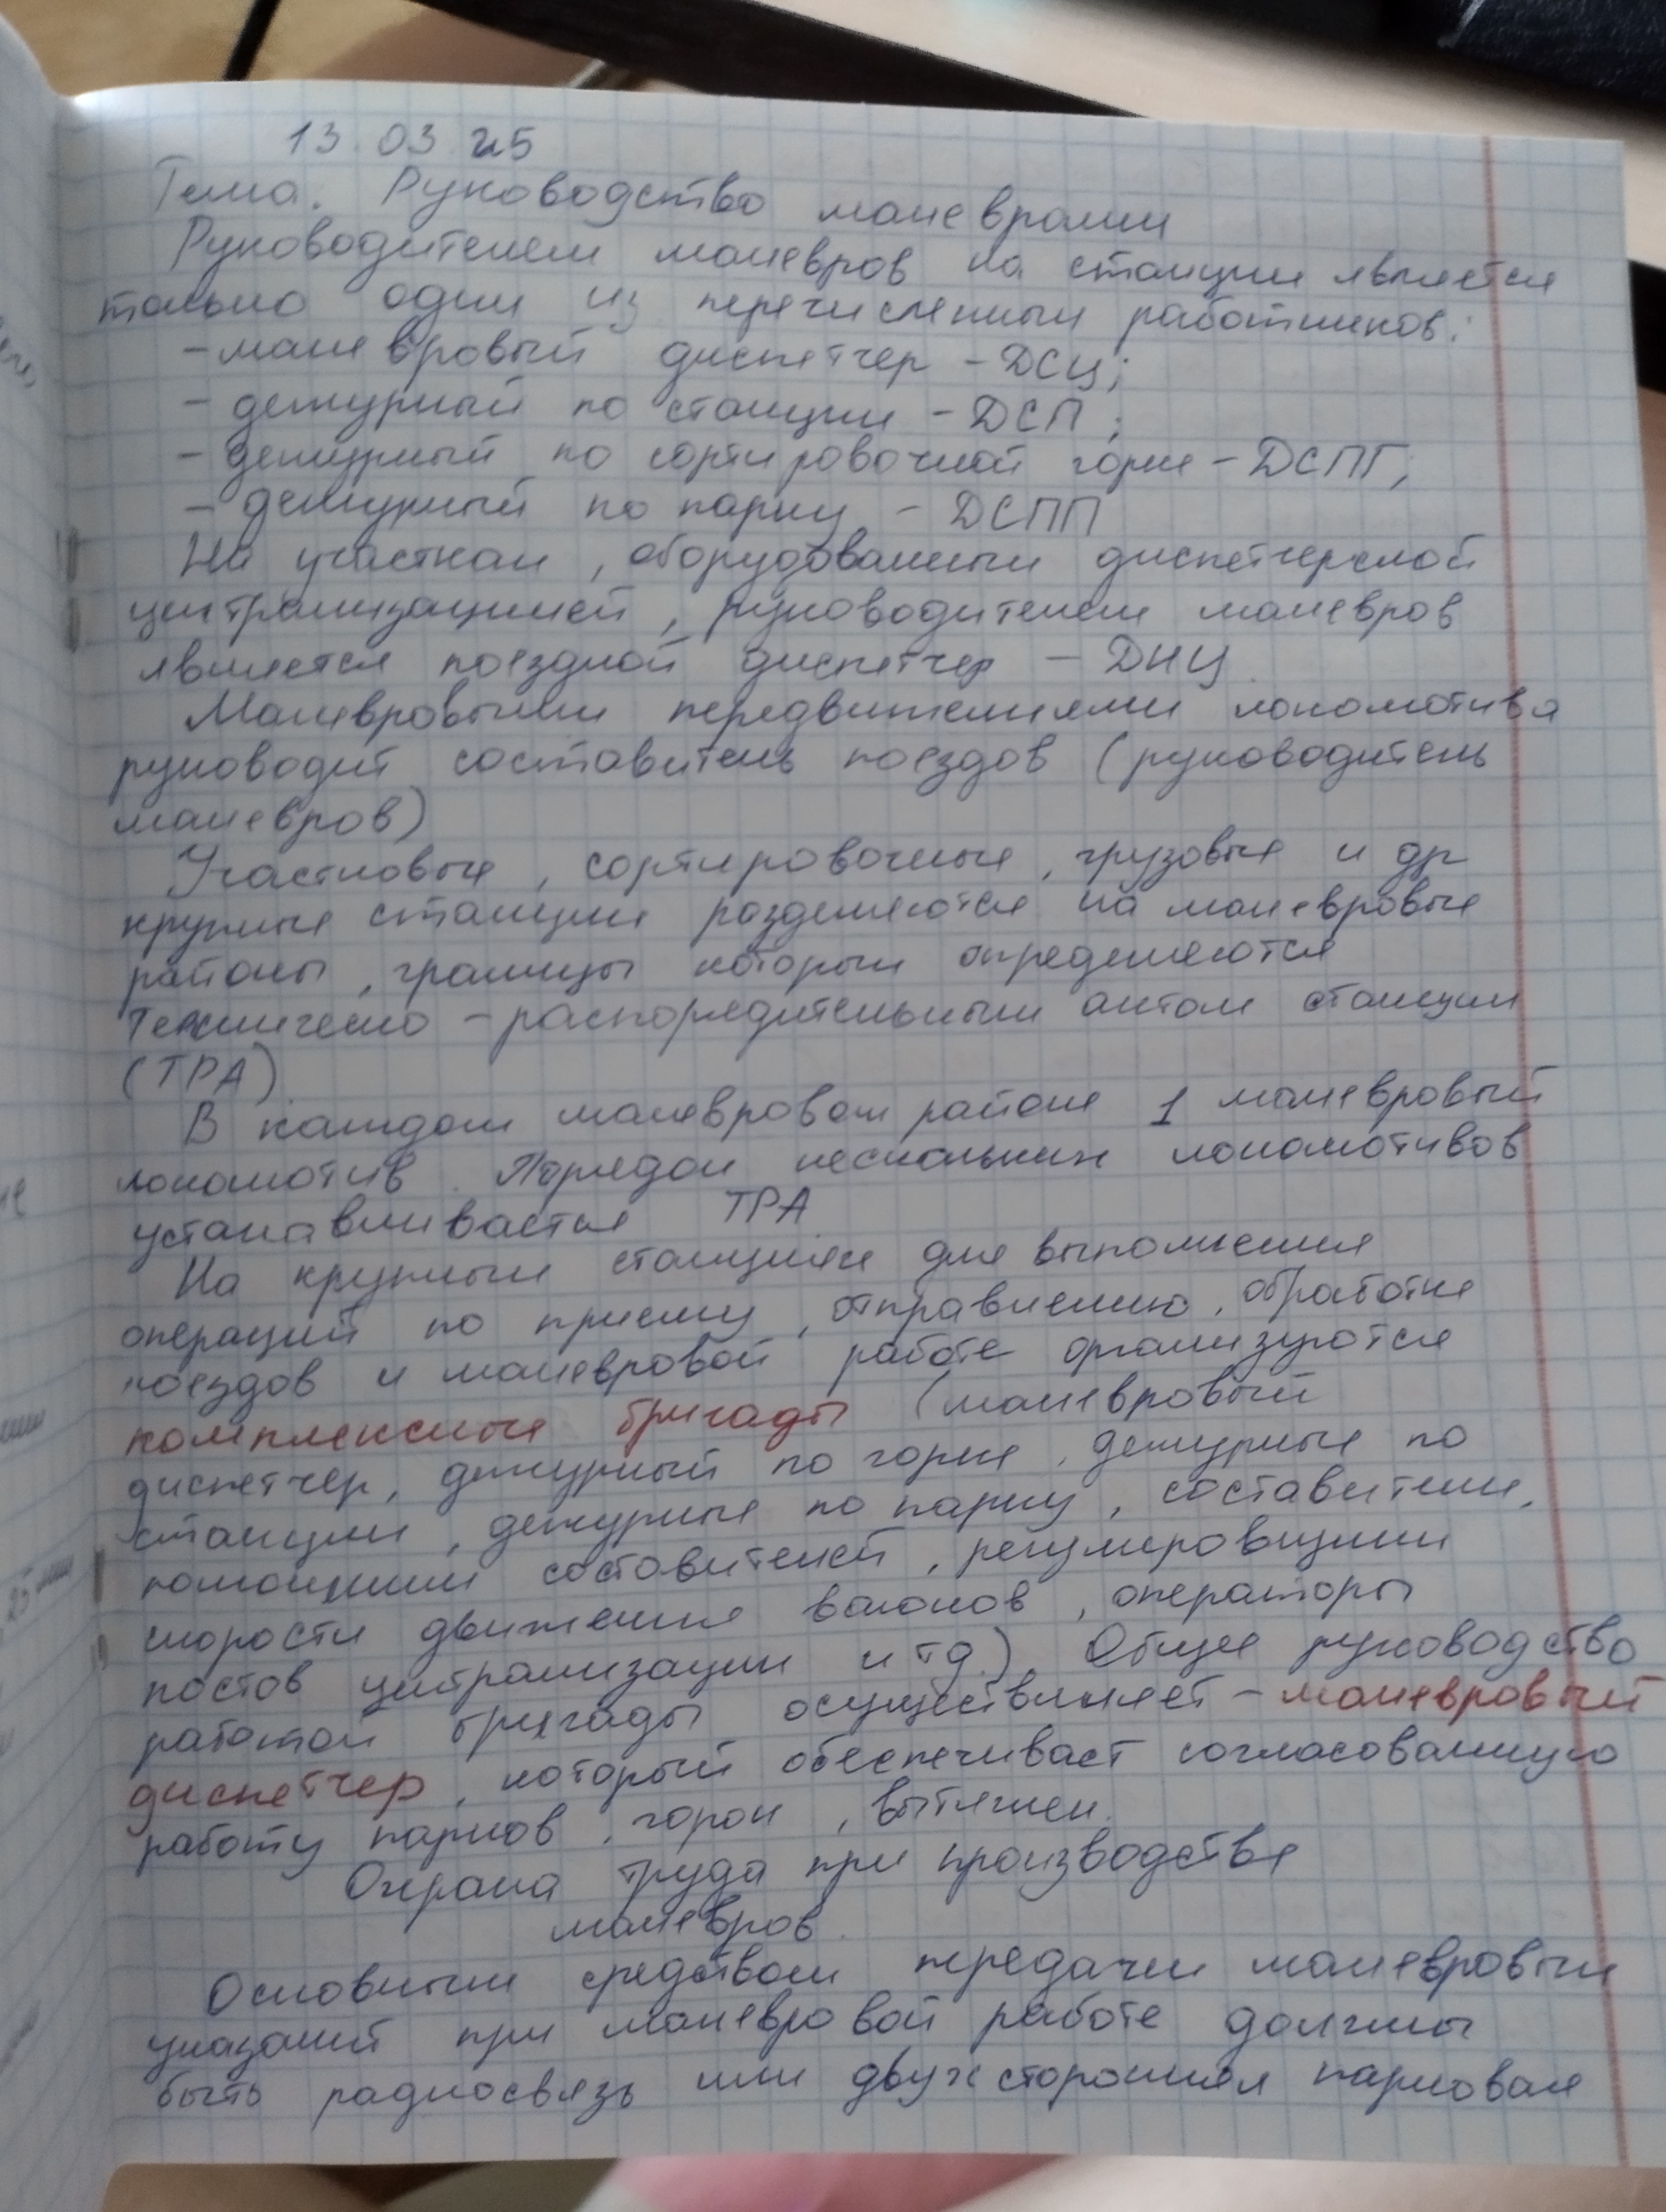 13.03.25
Тема. Руководство маневрами
Руководителем маневров на станции является
только один из перечисленных работников:
- маневровый диспетчер - ДСЦ;
- дежурный по станции - ДСП;
- дежурный по сортировочной горке - ДСПГ;
- дежурный по парку - ДСПП
На участках, оборудованных диспетчерской
централизацией, руководителем маневров
является поездной диспетчер - ДНЦ
Маневровыми передвижениями локомотива
руководит составитель поездов (руководитель
маневров)
Участковые, сортировочные, грузовые и др
крупные станции разделяются на маневровые
районы, границы которых определяются
техническо - распорядительным актом станции
(ТРА).
В каждом маневровом районе 1 маневровый
локомотив. Порядок нескольких локомотивов
устанавливается ТРА
На крупных станциях для выполнения
операций по приему, отправлению, обработке
поездов и маневровой работе организуются
комплексные бригады (маневровый
диспетчер, дежурный по горке, дежурные по
станции, дежурные по парку, составители,
помощники составителей, регулировщики
скорости движения вагонов, операторы
постов централизации и тд.) Общее руководство
работой бригады осуществляет - маневровый
диспетчер, который обеспечивает согласованную
работу парков, горок, вытяжек.
Охрана труда при производстве
маневров.
Основным средством передачи маневровых
указаний при маневровой работе должны
быть радиосвязь или двухсторонняя парковая